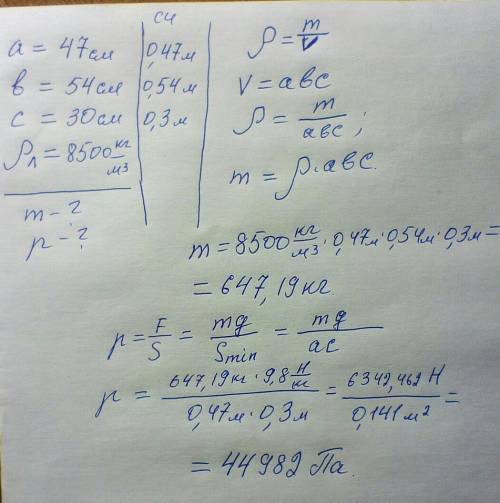 СИ
a = 47см 0,47м
в = 54см 0,54м
c = 30см 0,3м
ρл = 8500 кг/м³
m - ?
p - ?
ρ = m/V
V = aвc
ρ = m/aвc ;
m = ρ·aвc.
m = 8500 кг/м³ · 0,47м · 0,54м · 0,3м =
= 647,19кг.
p = F/S = mg/Smin = mg/ac
p = 647,19кг · 9,8 Н/кг / 0,47м · 0,3м = 6342,462 Н / 0,141м² =
= 44982 Па.